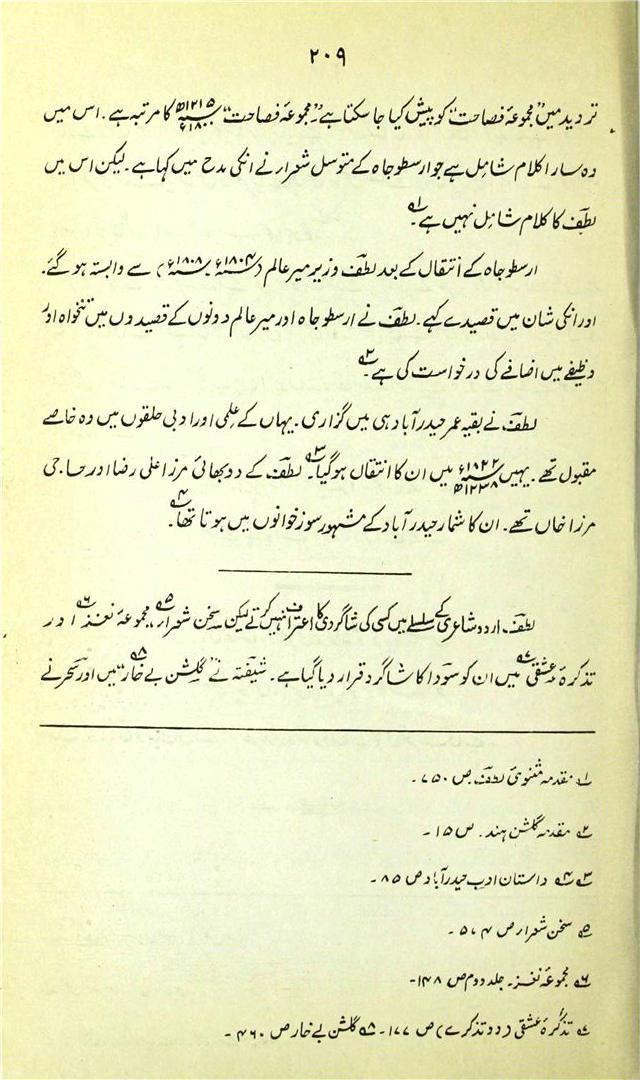 ۲۰۹
تردید میں "مجموعۂ فصاحت" کو پیش کیا جا سکتا ہے۔ "مجموعۂ فصاحت" ۱۲۱۵ھ ۱۸۰۰ء کا مرتبہ ہے۔ اس میں
وہ سارا کلام شامل ہے جو ارسطو جاہ کے متوسل شعراء نے انکی مدح میں کہا ہے۔ لیکن اس میں
لطفؔ کا کلام شامل نہیں ہے۔ ۱؎
ارسطو جاہ کے انتقال کے بعد لطفؔ وزیر میر عالم (۱۸۰۴ء ۱۸۰۸ء) سے وابستہ ہو گئے۔
اور انکی شان میں قصیدے کہے۔ لطفؔ نے ارسطو جاہ اور میر عالم دونوں کے قصیدوں میں تنخواہ اور
وظیفے میں اضافے کی درخواست کی ہے۔ ۲؎
لطفؔ نے بقیہ عمر حیدرآباد ہی میں گزاری۔ یہاں کے علمی اور ادبی حلقوں میں وہ خاصے
مقبول تھے۔ یہیں ۱۸۲۲ء ۱۲۳۸ھ میں ان کا انتقال ہو گیا۔ ۳؎ لطفؔ کے دو بھائی مرزا علی رضا اور حاجی
مرزا خاں تھے۔ ان کا شمار حیدرآباد کے مشہور سوز خوانوں میں ہوتا تھا۔ ۴؎
لطفؔ۔ اردو شاعری کے سلسلے میں کسی کی شاگردی کا اعتراف نہیں کرتے لیکن سخن شعراء، ۵؎ مجموعۂ نغز ۶؎ اور
تذکرۂ عشقی ۷؎ میں ان کو سوداؔ کا شاگرد قرار دیا گیا ہے۔ شیفتہؔ نے "گلشن بے خار" ۸؎ میں اور سحرؔ نے
۱؎ مقدمہ مثنوی لطفؔ ص ۷۵۰۔
۲؎ مقدمہ گلشن ہند۔ ص ۱۵۔
۳؎ ۴؎ داستان ادب حیدرآباد ص ۸۵۔
۵؎ سخن شعراء ص ۵۷۴۔
۶؎ مجموعۂ نغز۔ جلد دوم ص ۱۴۸۔
۷؎ تذکرۂ عشقی (دو تذکرے) ص ۱۷۷۔ ۸؎ گلشن بے خار ص ۴۶۰۔